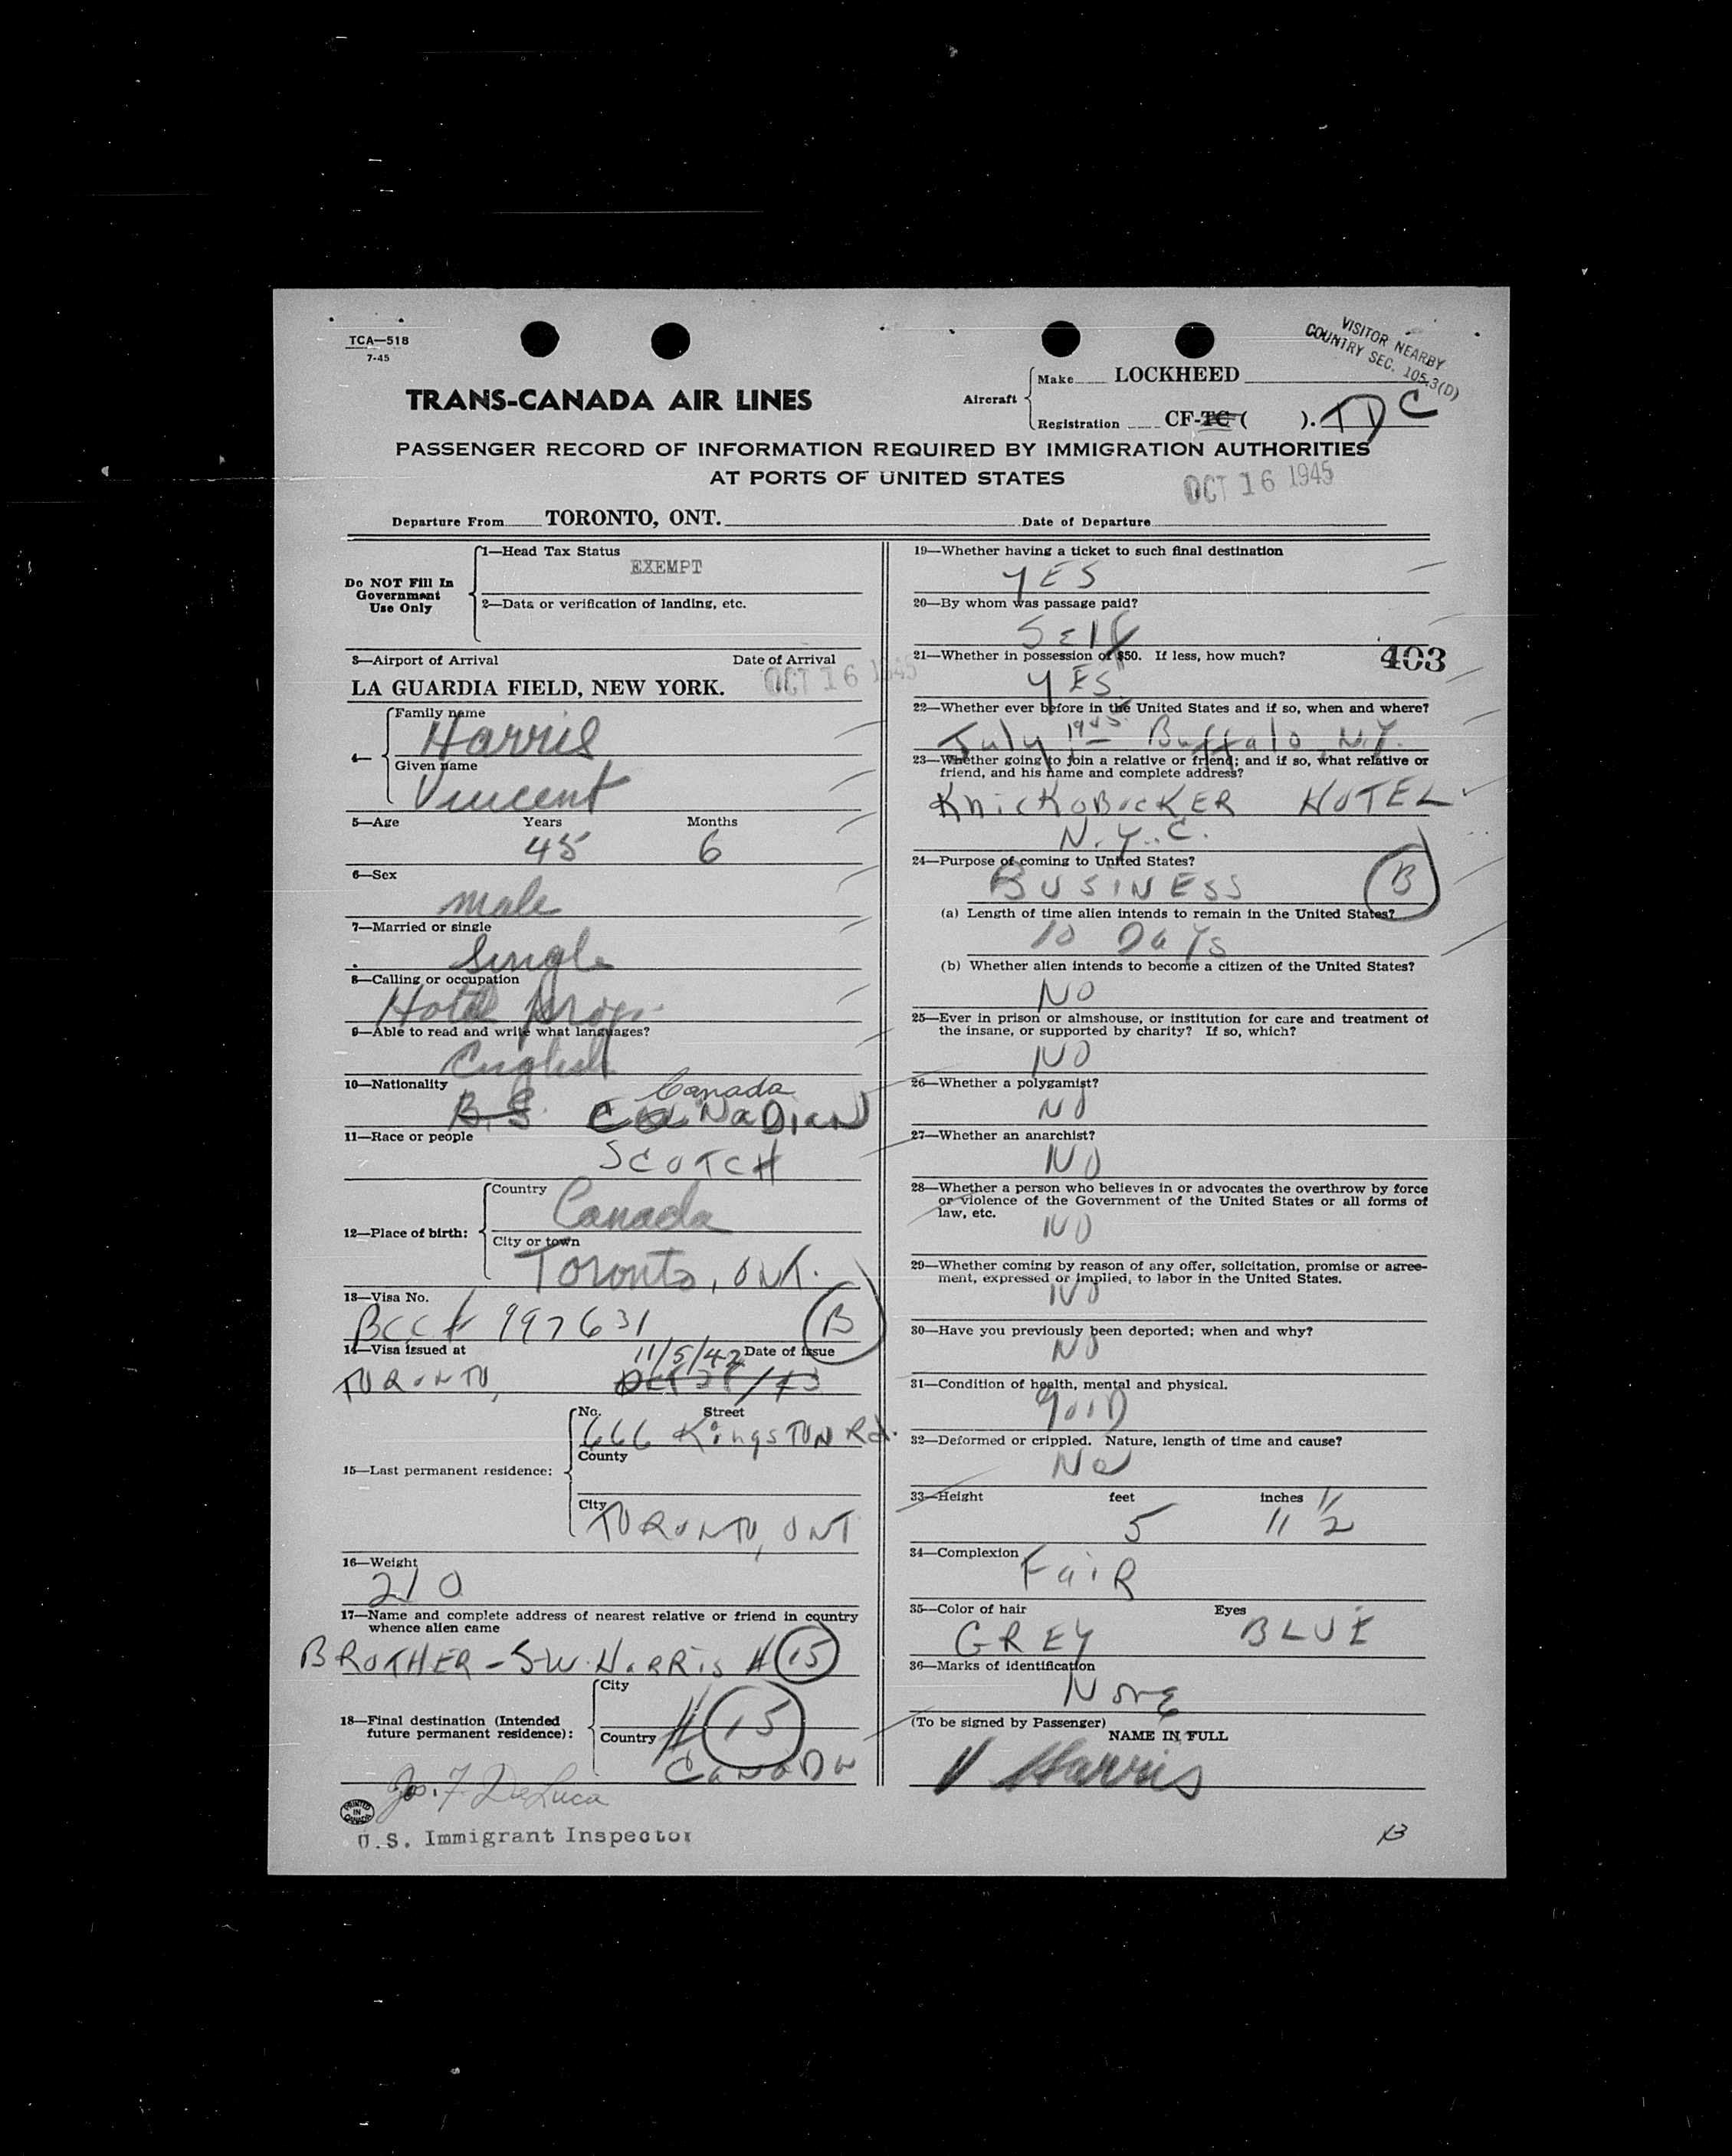 TCA—518
7-45
VISITOR NEARBY
COUNTRY SEC. 105.3(D)
TRANS-CANADA AIR LINES
Aircraft
Make LOCKHEED
Registration CF-TC ( ). TDC
PASSENGER RECORD OF INFORMATION REQUIRED BY IMMIGRATION AUTHORITIES
AT PORTS OF UNITED STATES
OCT 16 1945
Departure From TORONTO, ONT. Date of Departure
Do NOT Fill In
Government
Use Only
1—Head Tax Status
EXEMPT
2—Data or verification of landing, etc.
3—Airport of Arrival Date of Arrival
LA GUARDIA FIELD, NEW YORK. OCT 16 1945
4—
Family name
Harris
Given name
Vincent
5—Age Years Months
45 6
6—Sex
male
7—Married or single
Single
8—Calling or occupation
Hotel
9—Able to read and write what languages?
English
10—Nationality
Canada
B.S. CaNaDiaN
11—Race or people
SCOTCH
12—Place of birth:
Country
Canada
City or town
Toronto, ONT.
13—Visa No.
BCC# 997631 B
14—Visa issued at Date of issue
11/5/42
TORONTO,
15—Last permanent residence:
No. Street
666 KingsTON Rd.
County
City
TORONTO, ONT
16—Weight
210
17—Name and complete address of nearest relative or friend in country
whence alien came
BROTHER - S.W. HaRRis #15
18—Final destination (Intended
future permanent residence):
City
Country # 15
CaNaDa
Jos. F. DeLuca
PRINTED IN CANADA
U.S. Immigrant Inspector
19—Whether having a ticket to such final destination
YES
20—By whom was passage paid?
SElf
21—Whether in possession of $50. If less, how much?
403
YES
22—Whether ever before in the United States and if so, when and where?
July 1945 Buffalo N.Y.
23—Whether going to join a relative or friend; and if so, what relative or
friend, and his name and complete address?
KnicKoBocKER HOTEL
N.Y.C.
24—Purpose of coming to United States?
BUSINESS B
(a) Length of time alien intends to remain in the United States?
10 DaYs
(b) Whether alien intends to become a citizen of the United States?
NO
25—Ever in prison or almshouse, or institution for care and treatment of
the insane, or supported by charity? If so, which?
NO
26—Whether a polygamist?
NO
27—Whether an anarchist?
NO
28—Whether a person who believes in or advocates the overthrow by force
or violence of the Government of the United States or all forms of
law, etc.
NO
29—Whether coming by reason of any offer, solicitation, promise or agree-
ment, expressed or implied, to labor in the United States.
NO
30—Have you previously been deported; when and why?
NO
31—Condition of health, mental and physical.
gooD
32—Deformed or crippled. Nature, length of time and cause?
No
33—Height feet inches
5 11 1/2
34—Complexion
FaiR
35—Color of hair Eyes
GREY BLUE
36—Marks of identification
NonE
(To be signed by Passenger)
NAME IN FULL
V Harris
B